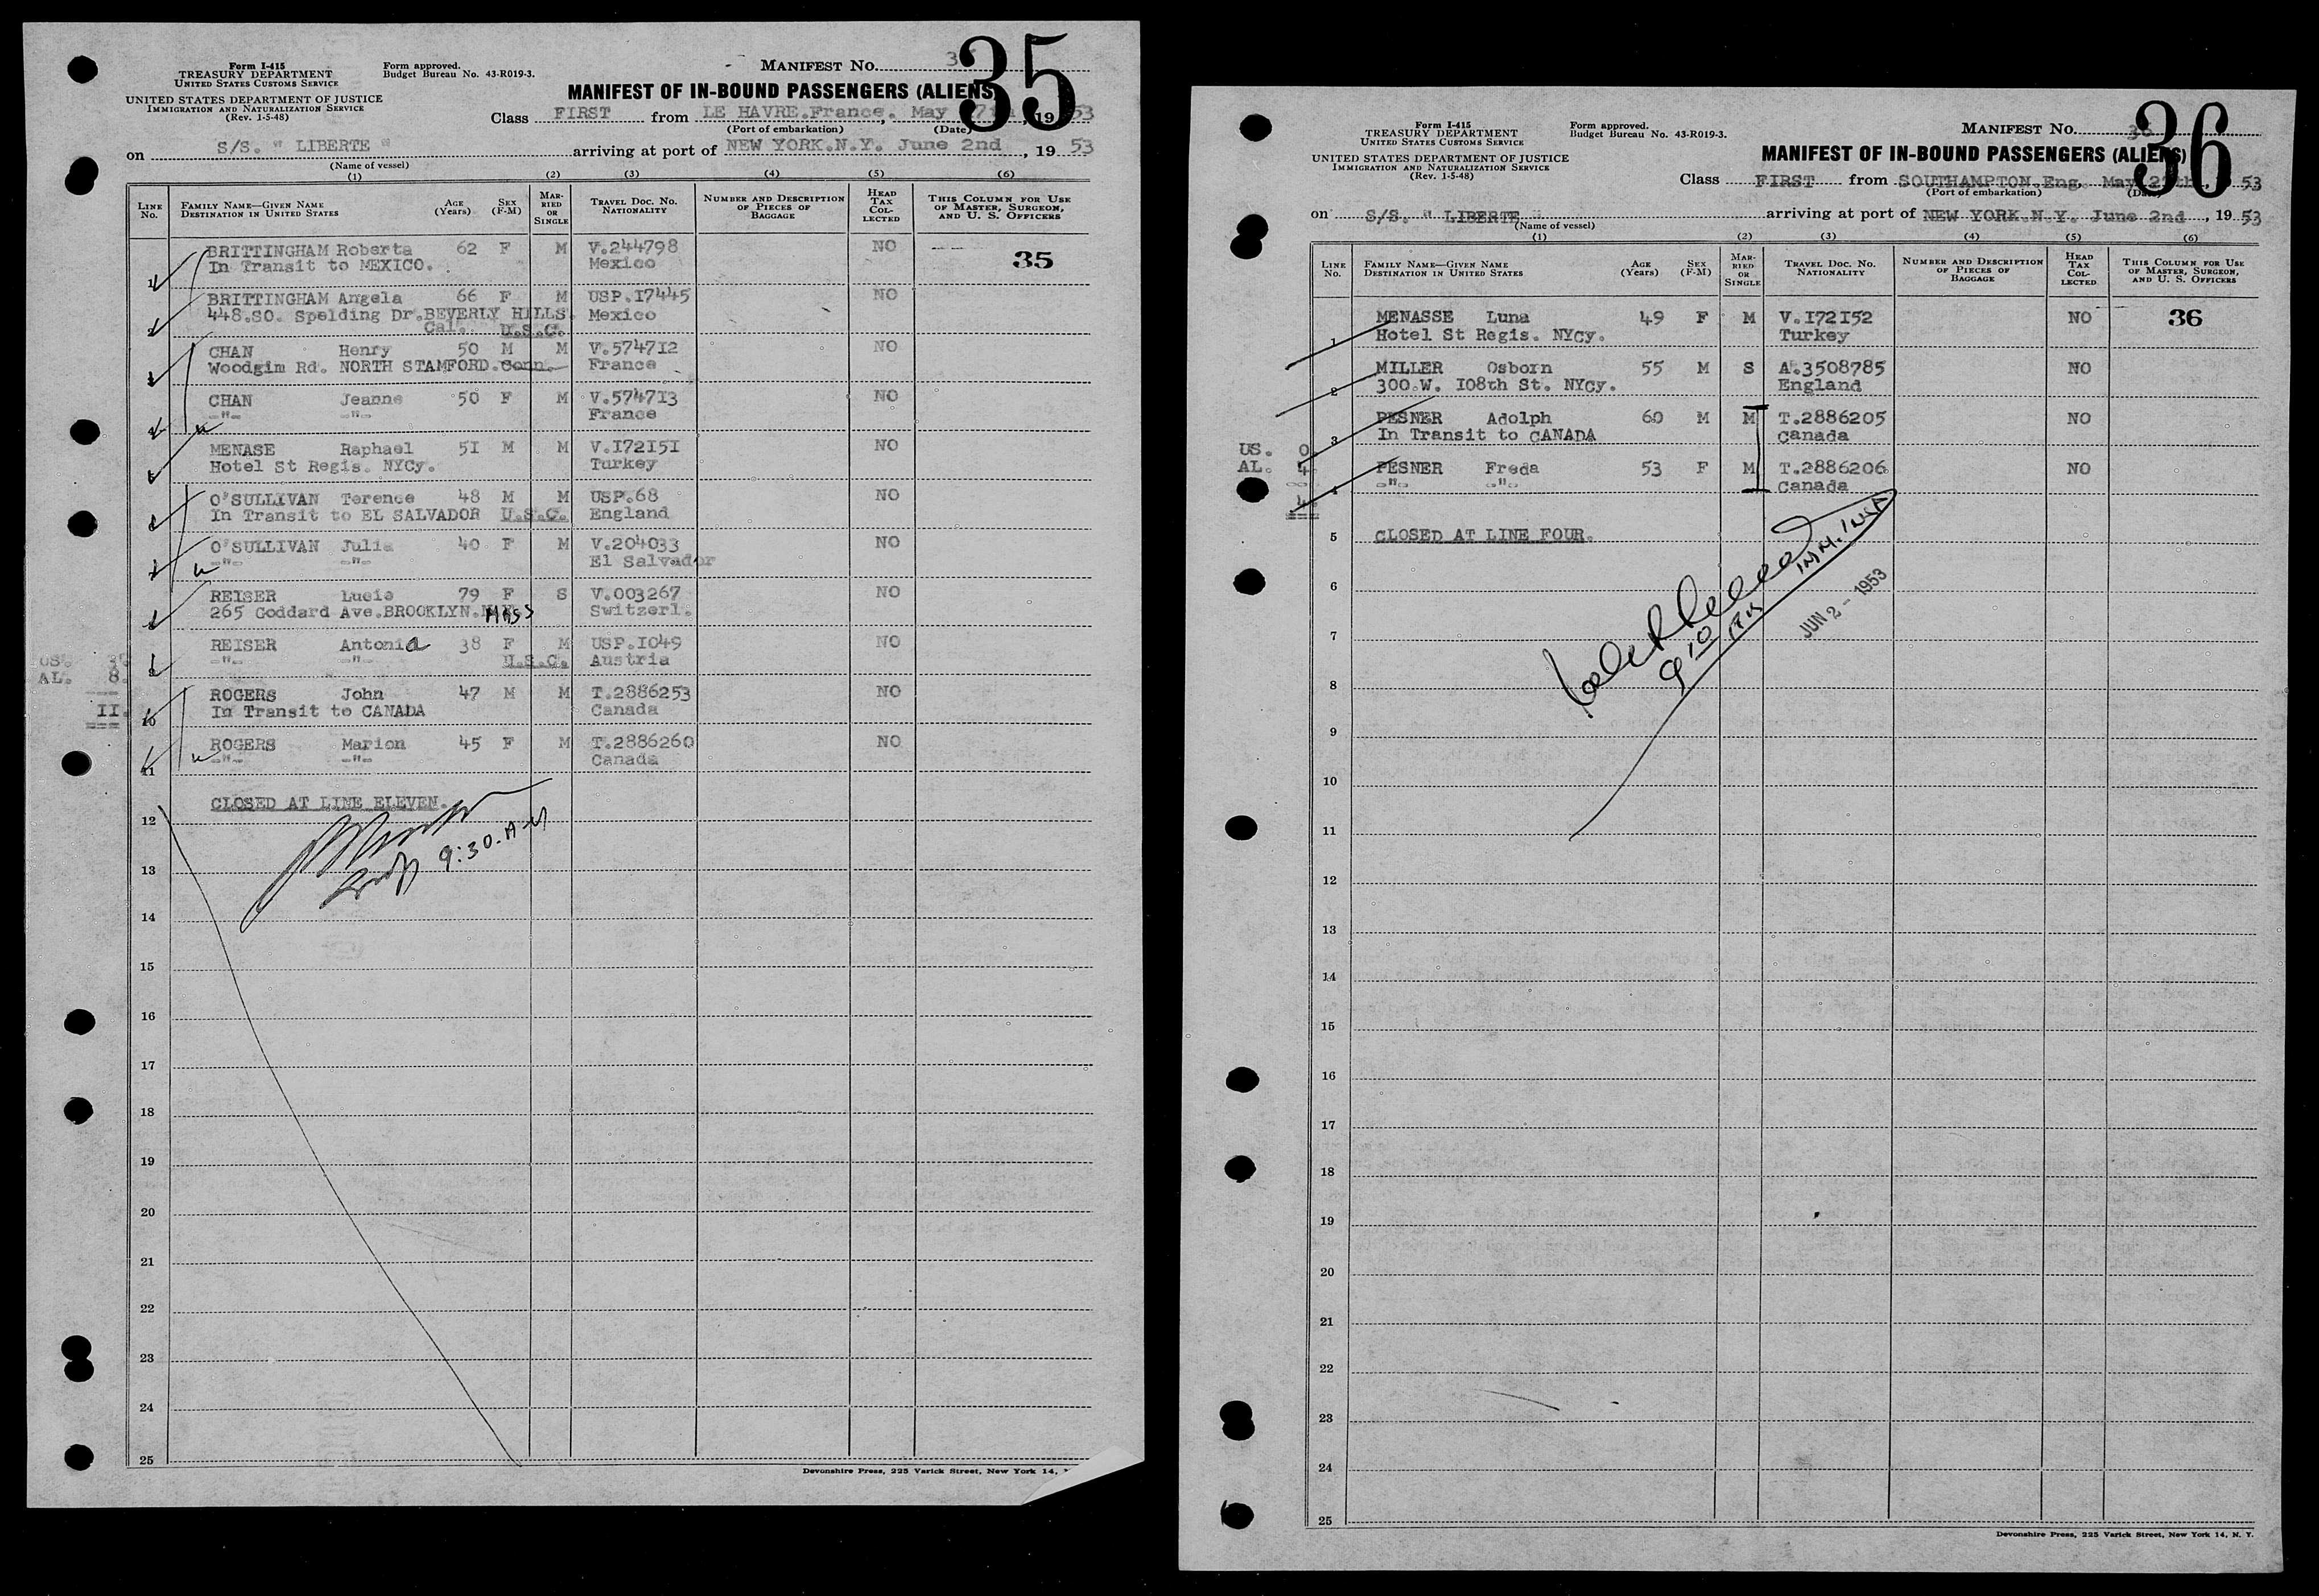 Form I-415
TREASURY DEPARTMENT
UNITED STATES CUSTOMS SERVICE
UNITED STATES DEPARTMENT OF JUSTICE
IMMIGRATION AND NATURALIZATION SERVICE
(Rev. 1-5-48)
Form approved.
Budget Bureau No. 43-R019-3.
MANIFEST No.
35
MANIFEST OF IN-BOUND PASSENGERS (ALIENS)
Class FIRST from LE HAVRE.France. May 19 53
(Port of embarkation) (Date)
on S/S. " LIBERTE " arriving at port of NEW YORK.N.Y. June 2nd , 19 53
(Name of vessel)
(1) (2) (3) (4) (5) (6)
LINE No. FAMILY NAME—GIVEN NAME DESTINATION IN UNITED STATES AGE (Years) SEX (F-M) MARRIED OR SINGLE TRAVEL DOC. NO. NATIONALITY NUMBER AND DESCRIPTION OF PIECES OF BAGGAGE HEAD TAX COLLECTED THIS COLUMN FOR USE OF MASTER, SURGEON, AND U. S. OFFICERS
BRITTINGHAM Roberta 62 F M V.244798 NO
In Transit to MEXICO. Mexico 35
BRITTINGHAM Angela 66 F M USP.I7445 NO
448.SO. Spelding Dr.BEVERLY HILLS. Mexico
Cal. U.S.C.
CHAN Henry 50 M M V.5747I2 NO
Woodgim Rd. NORTH STAMFORD.Conn. France
CHAN Jeanne 50 F M V.5747I3 NO
-"- -"- France
MENASE Raphael 5I M M V.I72I5I NO
Hotel St Regis. NYCy. Turkey
O'SULLIVAN Terence 48 M M USP.68 NO
In Transit to EL SALVADOR U.S.C. England
O'SULLIVAN Julia 40 F M V.204033 NO
-"- El Salvador
REISER Lucie 79 F S V.003267 NO
265 Goddard Ave.BROOKLYN. MASS Switzerl.
REISER Antonia 38 F M USP.I049 NO
-"- -"- U.S.C. Austria
US. 3
AL. 8.
II.
ROGERS John 47 M M T.2886253 NO
In Transit to CANADA Canada
10
ROGERS Marion 45 F M T.2886260 NO
-"- -"- Canada
11
CLOSED AT LINE ELEVEN.
12
9:30.AM
13
14
15
16
17
18
19
20
21
22
23
24
25
Devonshire Press, 225 Varick Street, New York 14,
Form I-415
TREASURY DEPARTMENT
UNITED STATES CUSTOMS SERVICE
UNITED STATES DEPARTMENT OF JUSTICE
IMMIGRATION AND NATURALIZATION SERVICE
(Rev. 1-5-48)
Form approved.
Budget Bureau No. 43-R019-3.
MANIFEST No. 36
36
MANIFEST OF IN-BOUND PASSENGERS (ALIENS)
Class FIRST from SOUTHAMPTON.Eng. May 27th, 53
(Port of embarkation) (Date)
on S/S. " LIBERTE " arriving at port of NEW YORK.N.Y. June 2nd , 19 53
(Name of vessel)
(1) (2) (3) (4) (5) (6)
LINE No. FAMILY NAME—GIVEN NAME DESTINATION IN UNITED STATES AGE (Years) SEX (F-M) MARRIED OR SINGLE TRAVEL DOC. NO. NATIONALITY NUMBER AND DESCRIPTION OF PIECES OF BAGGAGE HEAD TAX COLLECTED THIS COLUMN FOR USE OF MASTER, SURGEON, AND U. S. OFFICERS
MENASSE Luna 49 F M V.I72I52 NO 36
1 Hotel St Regis. NYCy. Turkey
MILLER Osborn 55 M S A.3508785 NO
2 300.W. I08th St. NYCy. England
PESNER Adolph 60 M M T.2886205 NO
3 In Transit to CANADA Canada
US. 0
AL. 4.
4.
PESNER Freda 53 F M T.2886206 NO
4 -"- -"- Canada
5 CLOSED AT LINE FOUR.
IMM. INSP
9 10 AM
JUN 2 - 1953
6
7
8
9
10
11
12
13
14
15
16
17
18
19
20
21
22
23
24
25
Devonshire Press, 225 Varick Street, New York 14, N. Y.